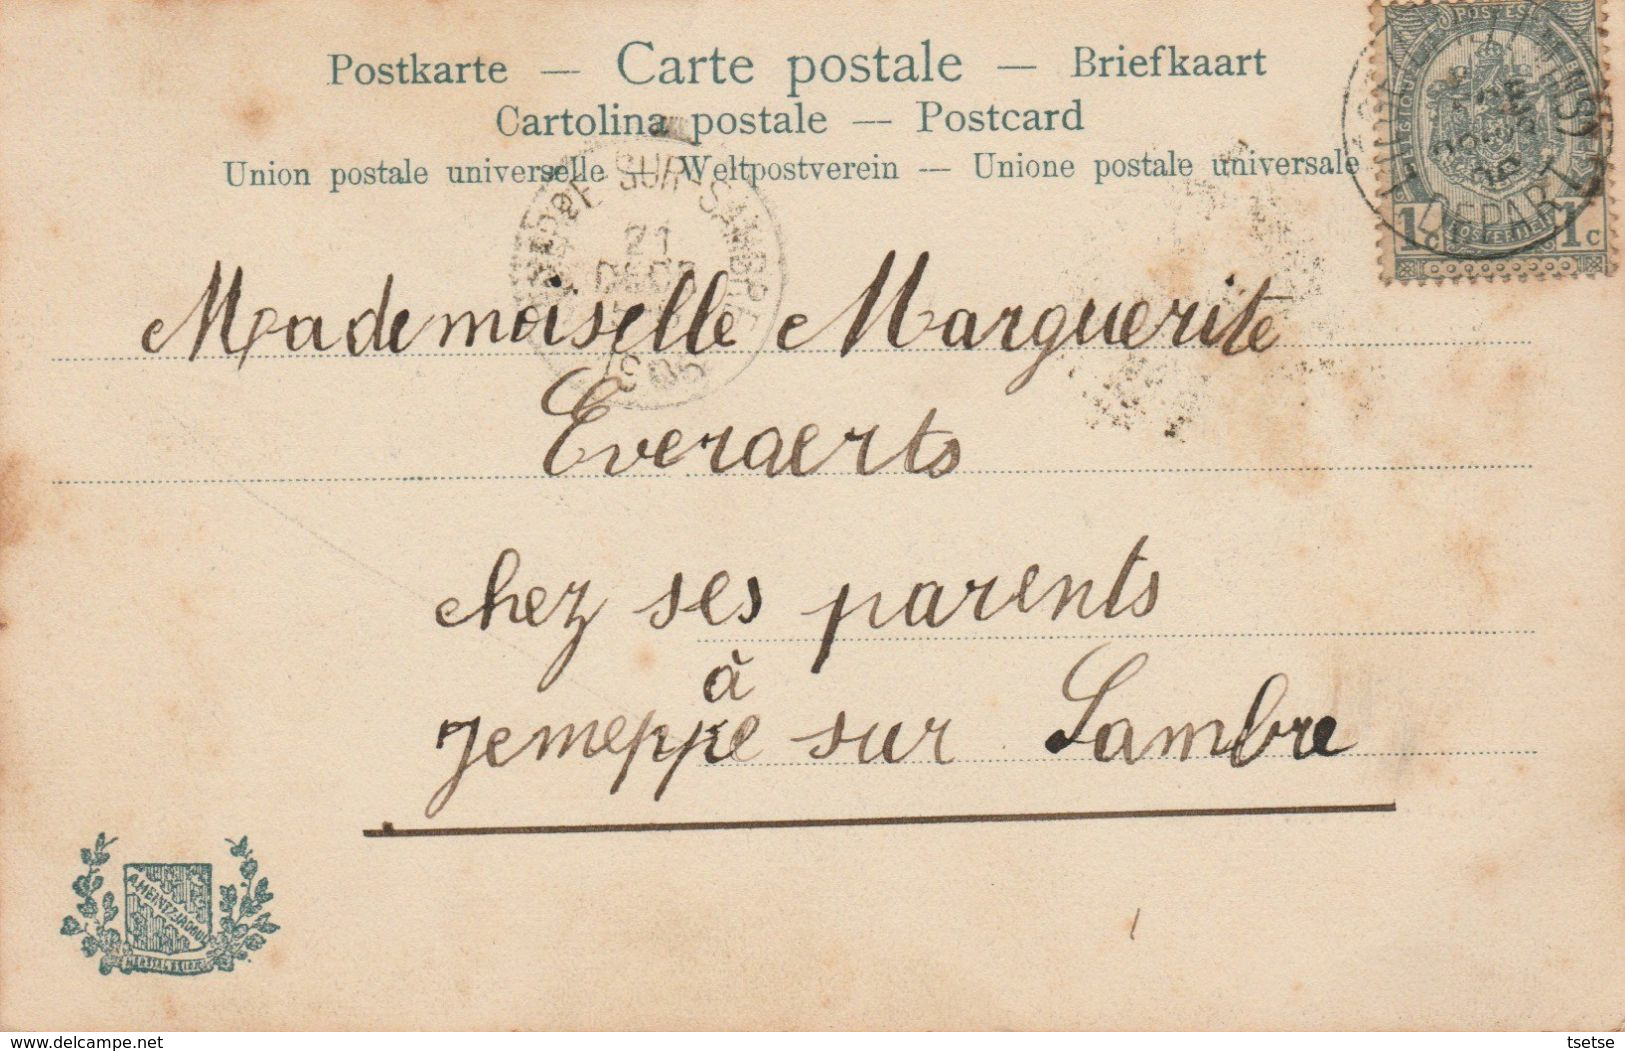 Postkarte — Carte postale — Briefkaart
Cartolina postale — Postcard
Union postale universelle — Weltpostverein — Unione postale universale
POSTES
1c 1c
DEPART
SUR SAMBRE
21
DECE
Mademoiselle Marguerite
Everaerts
chez ses parents
à
Jemeppe sur Sambre
www.delcampe.net
tsetse